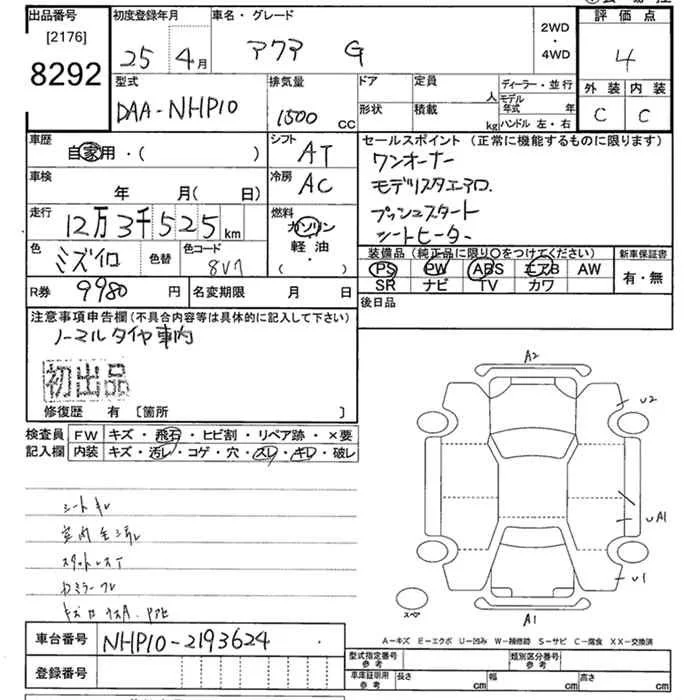 出品番号
[2176]
8292
初度登録年月
25 4月
車名・グレード
アクア G
2WD
・
4WD
評価点
4
外装 内装
C C
型式
DAA-NHP10
排気量
1500 CC
ドア
定員
人
形状
積載
kg
ディーラー・並行
モデル年式 年
ハンドル 左・右
車歴
自家用・( )
シフト
AT
車検
年 月( 日)
冷房
AC
走行
12万3千525km
燃料
ガソリン
軽油
・( )
色
ミズイロ
色替
色コード
8V7
R券 9980 円
名変期限 月 日
セールスポイント(正常に機能するものに限ります)
ワンオーナー
モデリスタエアロ.
プッシュスタート
シートヒーター
装備品(純正品に限り○をつけてください)
PS PW ABS エアB AW
SR ナビ TV カワ
新車保証書
有・無
後日品
注意事項申告欄(不具合内容等は具体的に記入して下さい)
ノーマルタイヤ車内
初出品
修復歴 有 〔箇所 〕
検査員
記入欄
FW キズ・飛石・ヒビ割・リペア跡・×要
内装 キズ・汚レ・コゲ・穴・スレ・キレ・破レ
シートキレ
A2
U2
UA1
U1
A1
スペア
A－キズ E－エクボ U－凹み W－補修跡 S－サビ C－腐食 XX－交換済
車台番号 NHP10-2193624
登録番号
型式指定番号
参考
類別区分番号
参考
車庫証明用
参考
長さ cm
幅 cm
高さ cm